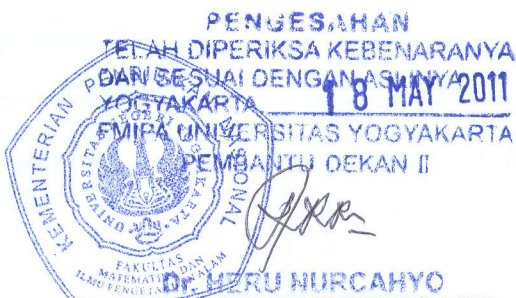 PENGESAHAN
TELAH DIPERIKSA KEBENARANYA
DAN SESUAI DENGAN ASLINYA
YOGYAKARTA 18 MAY 2011
FMIPA UNIVERSITAS YOGYAKARTA
PEMBANTU DEKAN II
KEMENTERIAN PENDIDIKAN NASIONAL
UNIVERSITAS NEGERI YOGYAKARTA
FAKULTAS
MATEMATIKA DAN
ILMU PENGETAHUAN ALAM
Dr. HERU NURCAHYO